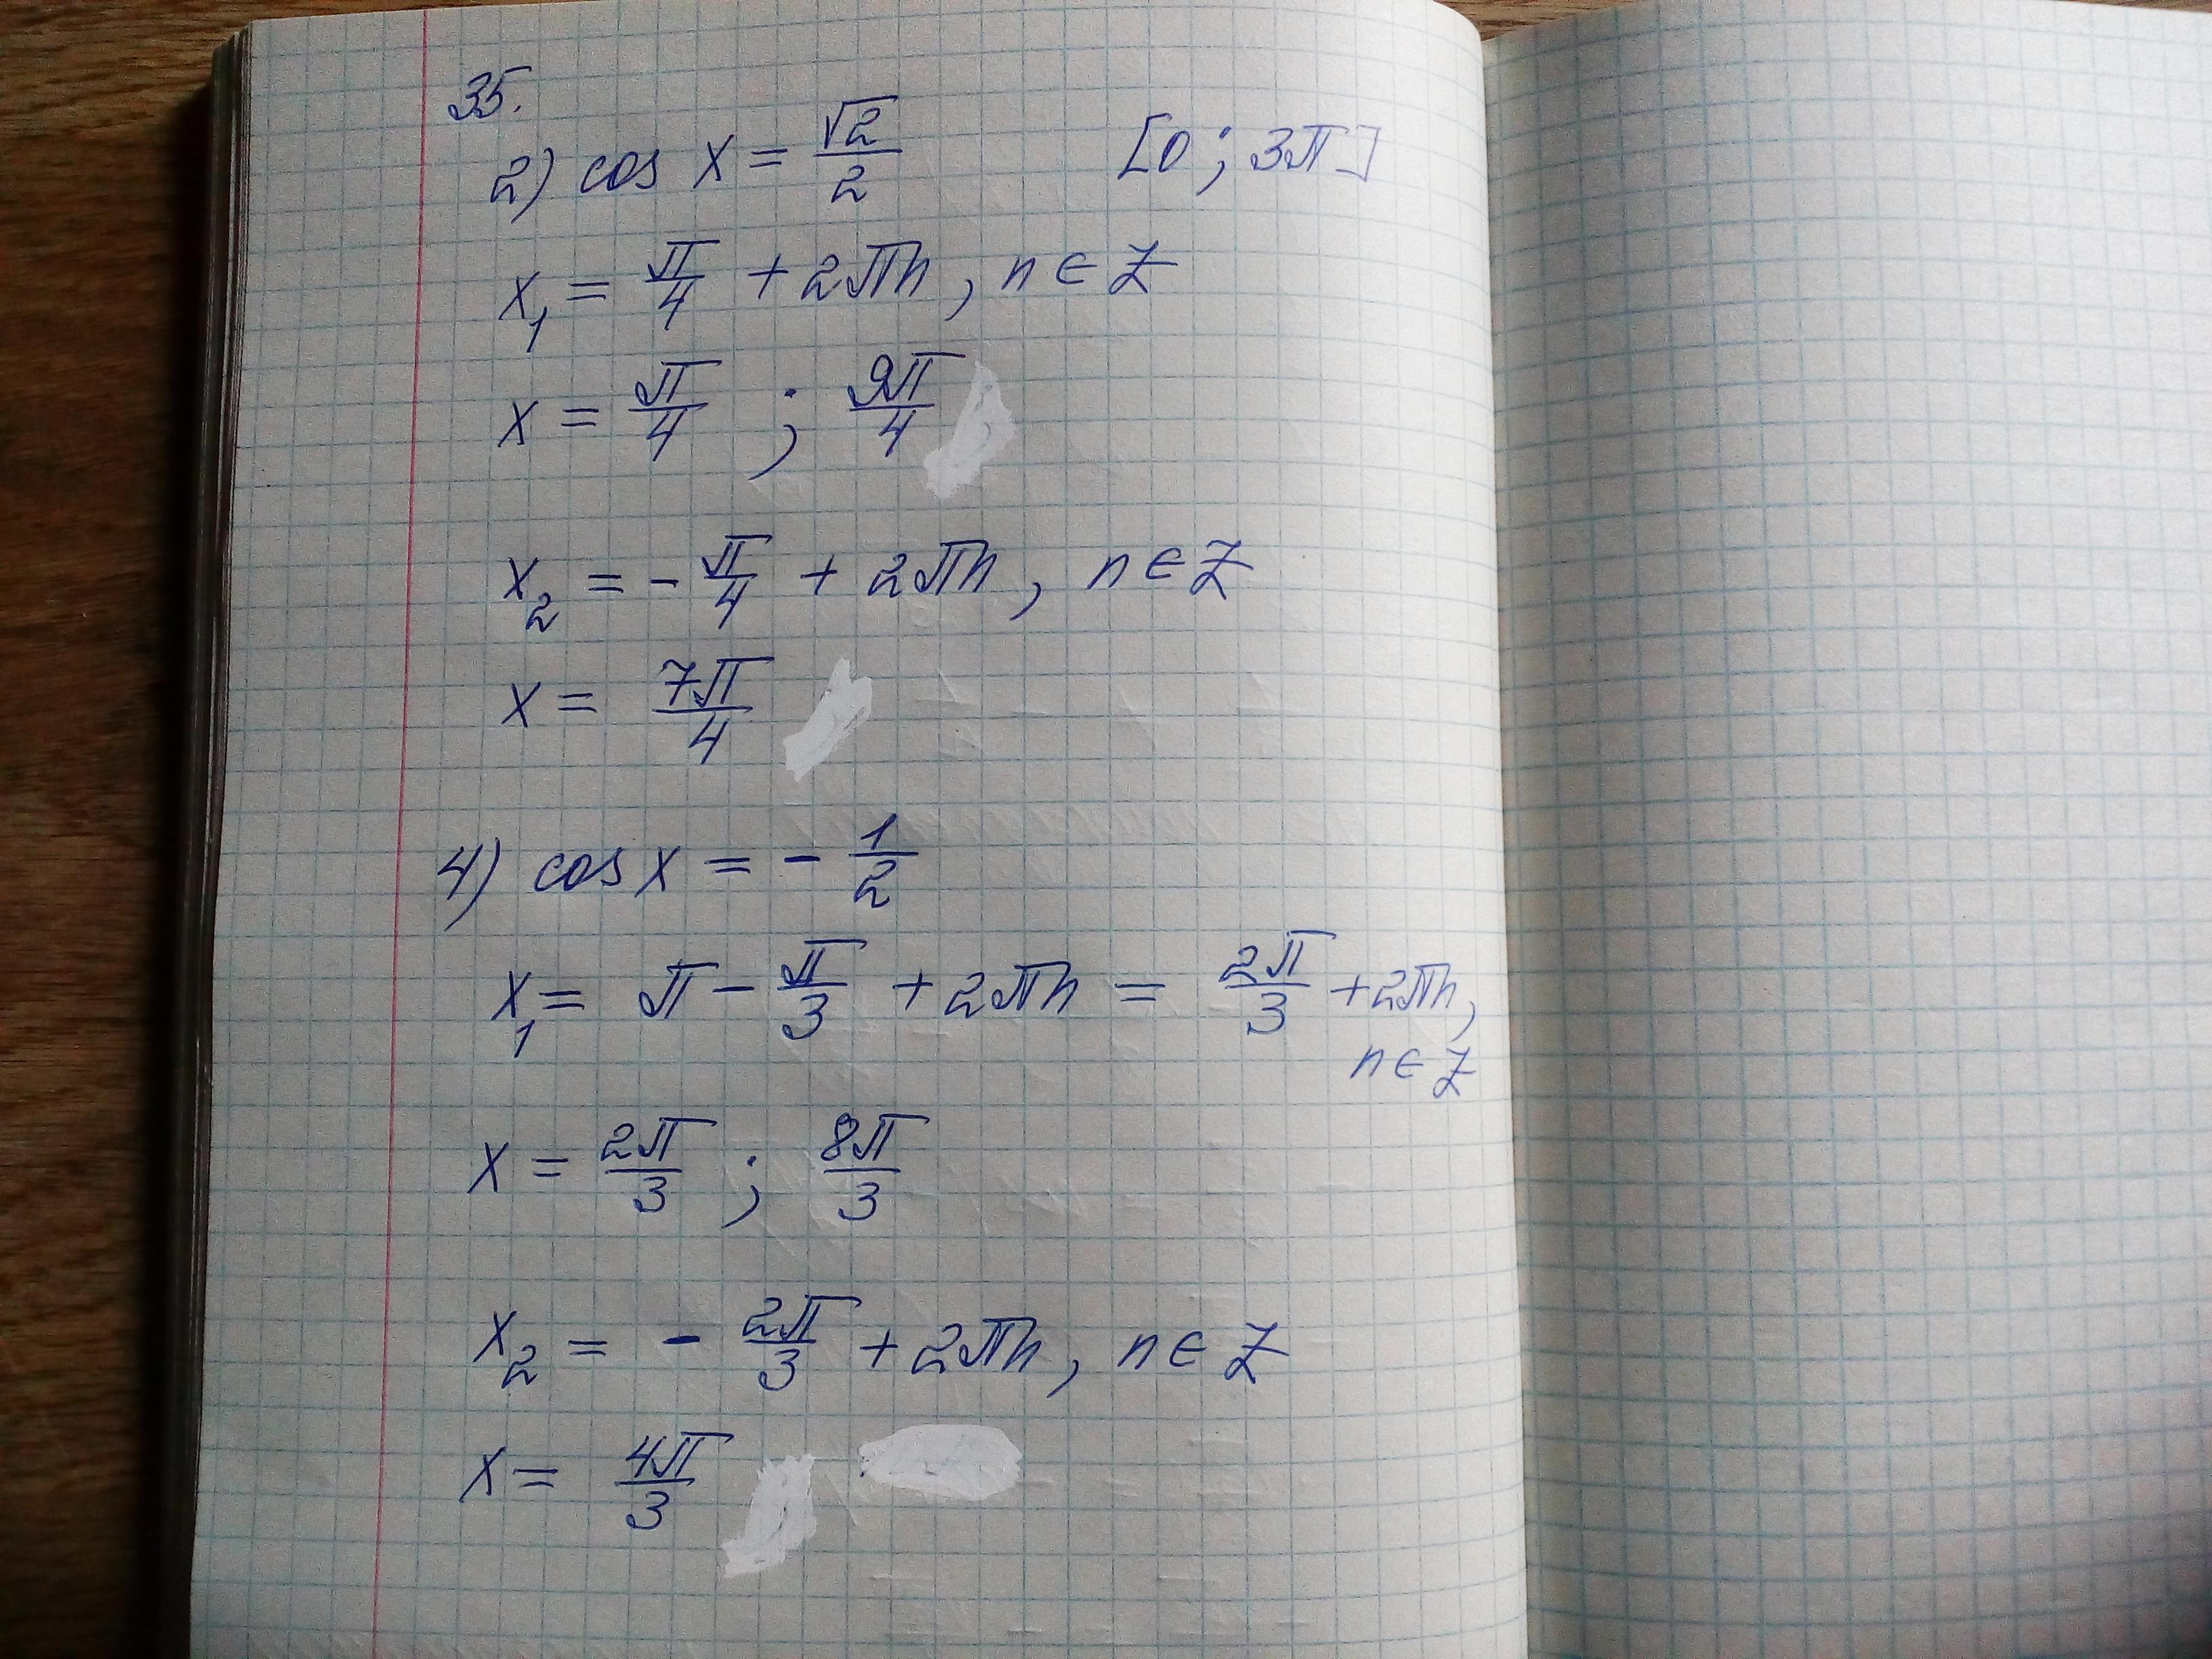 35.
2) cos x = √2/2 [0 ; 3π]
x₁ = π/4 + 2πn , n ∈ Z
x = π/4 ; 9π/4
x₂ = - π/4 + 2πn , n ∈ Z
x = 7π/4
4) cos x = - 1/2
x₁ = π - π/3 + 2πn = 2π/3 + 2πn,
n ∈ Z
x = 2π/3 ; 8π/3
x₂ = - 2π/3 + 2πn , n ∈ Z
x = 4π/3